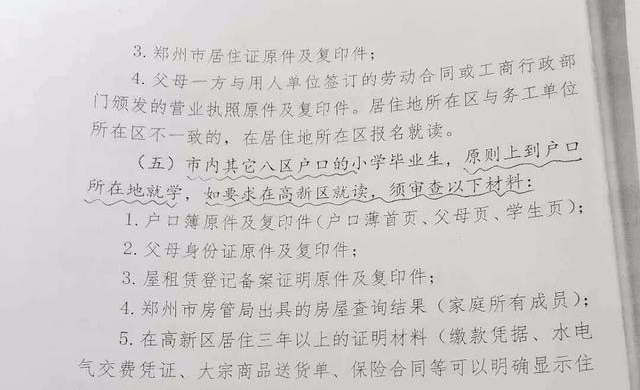 3. 郑州市居住证原件及复印件；
4. 父母一方与用人单位签订的劳动合同或工商行政部
门颁发的营业执照原件及复印件。居住地所在区与务工单位
所在区不一致的，在居住地所在区报名就读。
（五）市内其它八区户口的小学毕业生，原则上到户口
所在地就学，如要求在高新区就读，须审查以下材料：
1. 户口簿原件及复印件（户口薄首页、父母页、学生页）；
2. 父母身份证原件及复印件；
3. 屋租赁登记备案证明原件及复印件；
4. 郑州市房管局出具的房屋查询结果（家庭所有成员）；
5. 在高新区居住三年以上的证明材料（缴款凭据、水电
气交费凭证、大宗商品送货单、保险合同等可以明确显示住